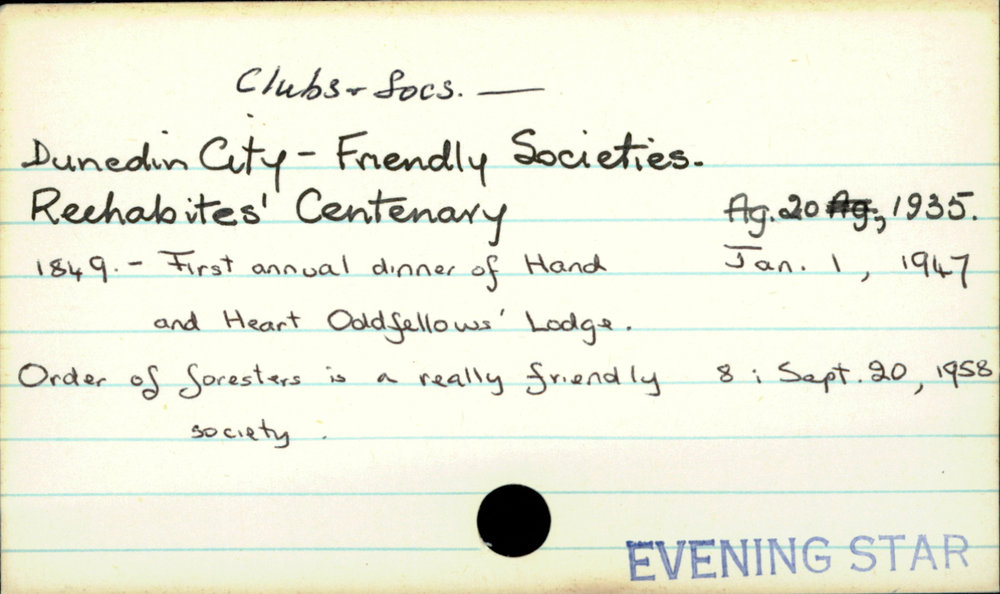 Clubs & Socs. —
Dunedin City - Friendly Societies.
Rechabites' Centenary Ag. 20 Ag., 1935.
1849. - First annual dinner of Hand Jan. 1, 1947
and Heart Oddfellows' Lodge.
Order of foresters is a really friendly 8 ; Sept. 20, 1958
society.
EVENING STAR